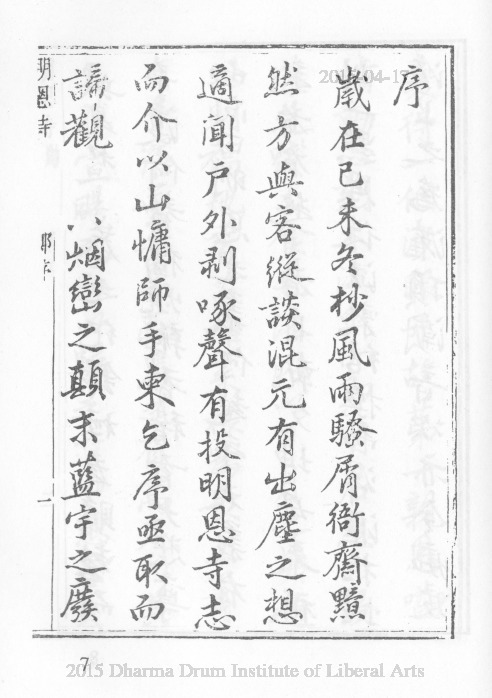 序
歲在己未冬杪風雨騷屑衙齋黯
然方與客縱談混元有出塵之想
適聞戶外剥啄聲有投明恩寺志
而介以山慵師手柬乞序亟取而
諦觀 烟巒之顛末藍宇之廢
明恩寺
7
2015 Dharma Drum Institute of Liberal Arts